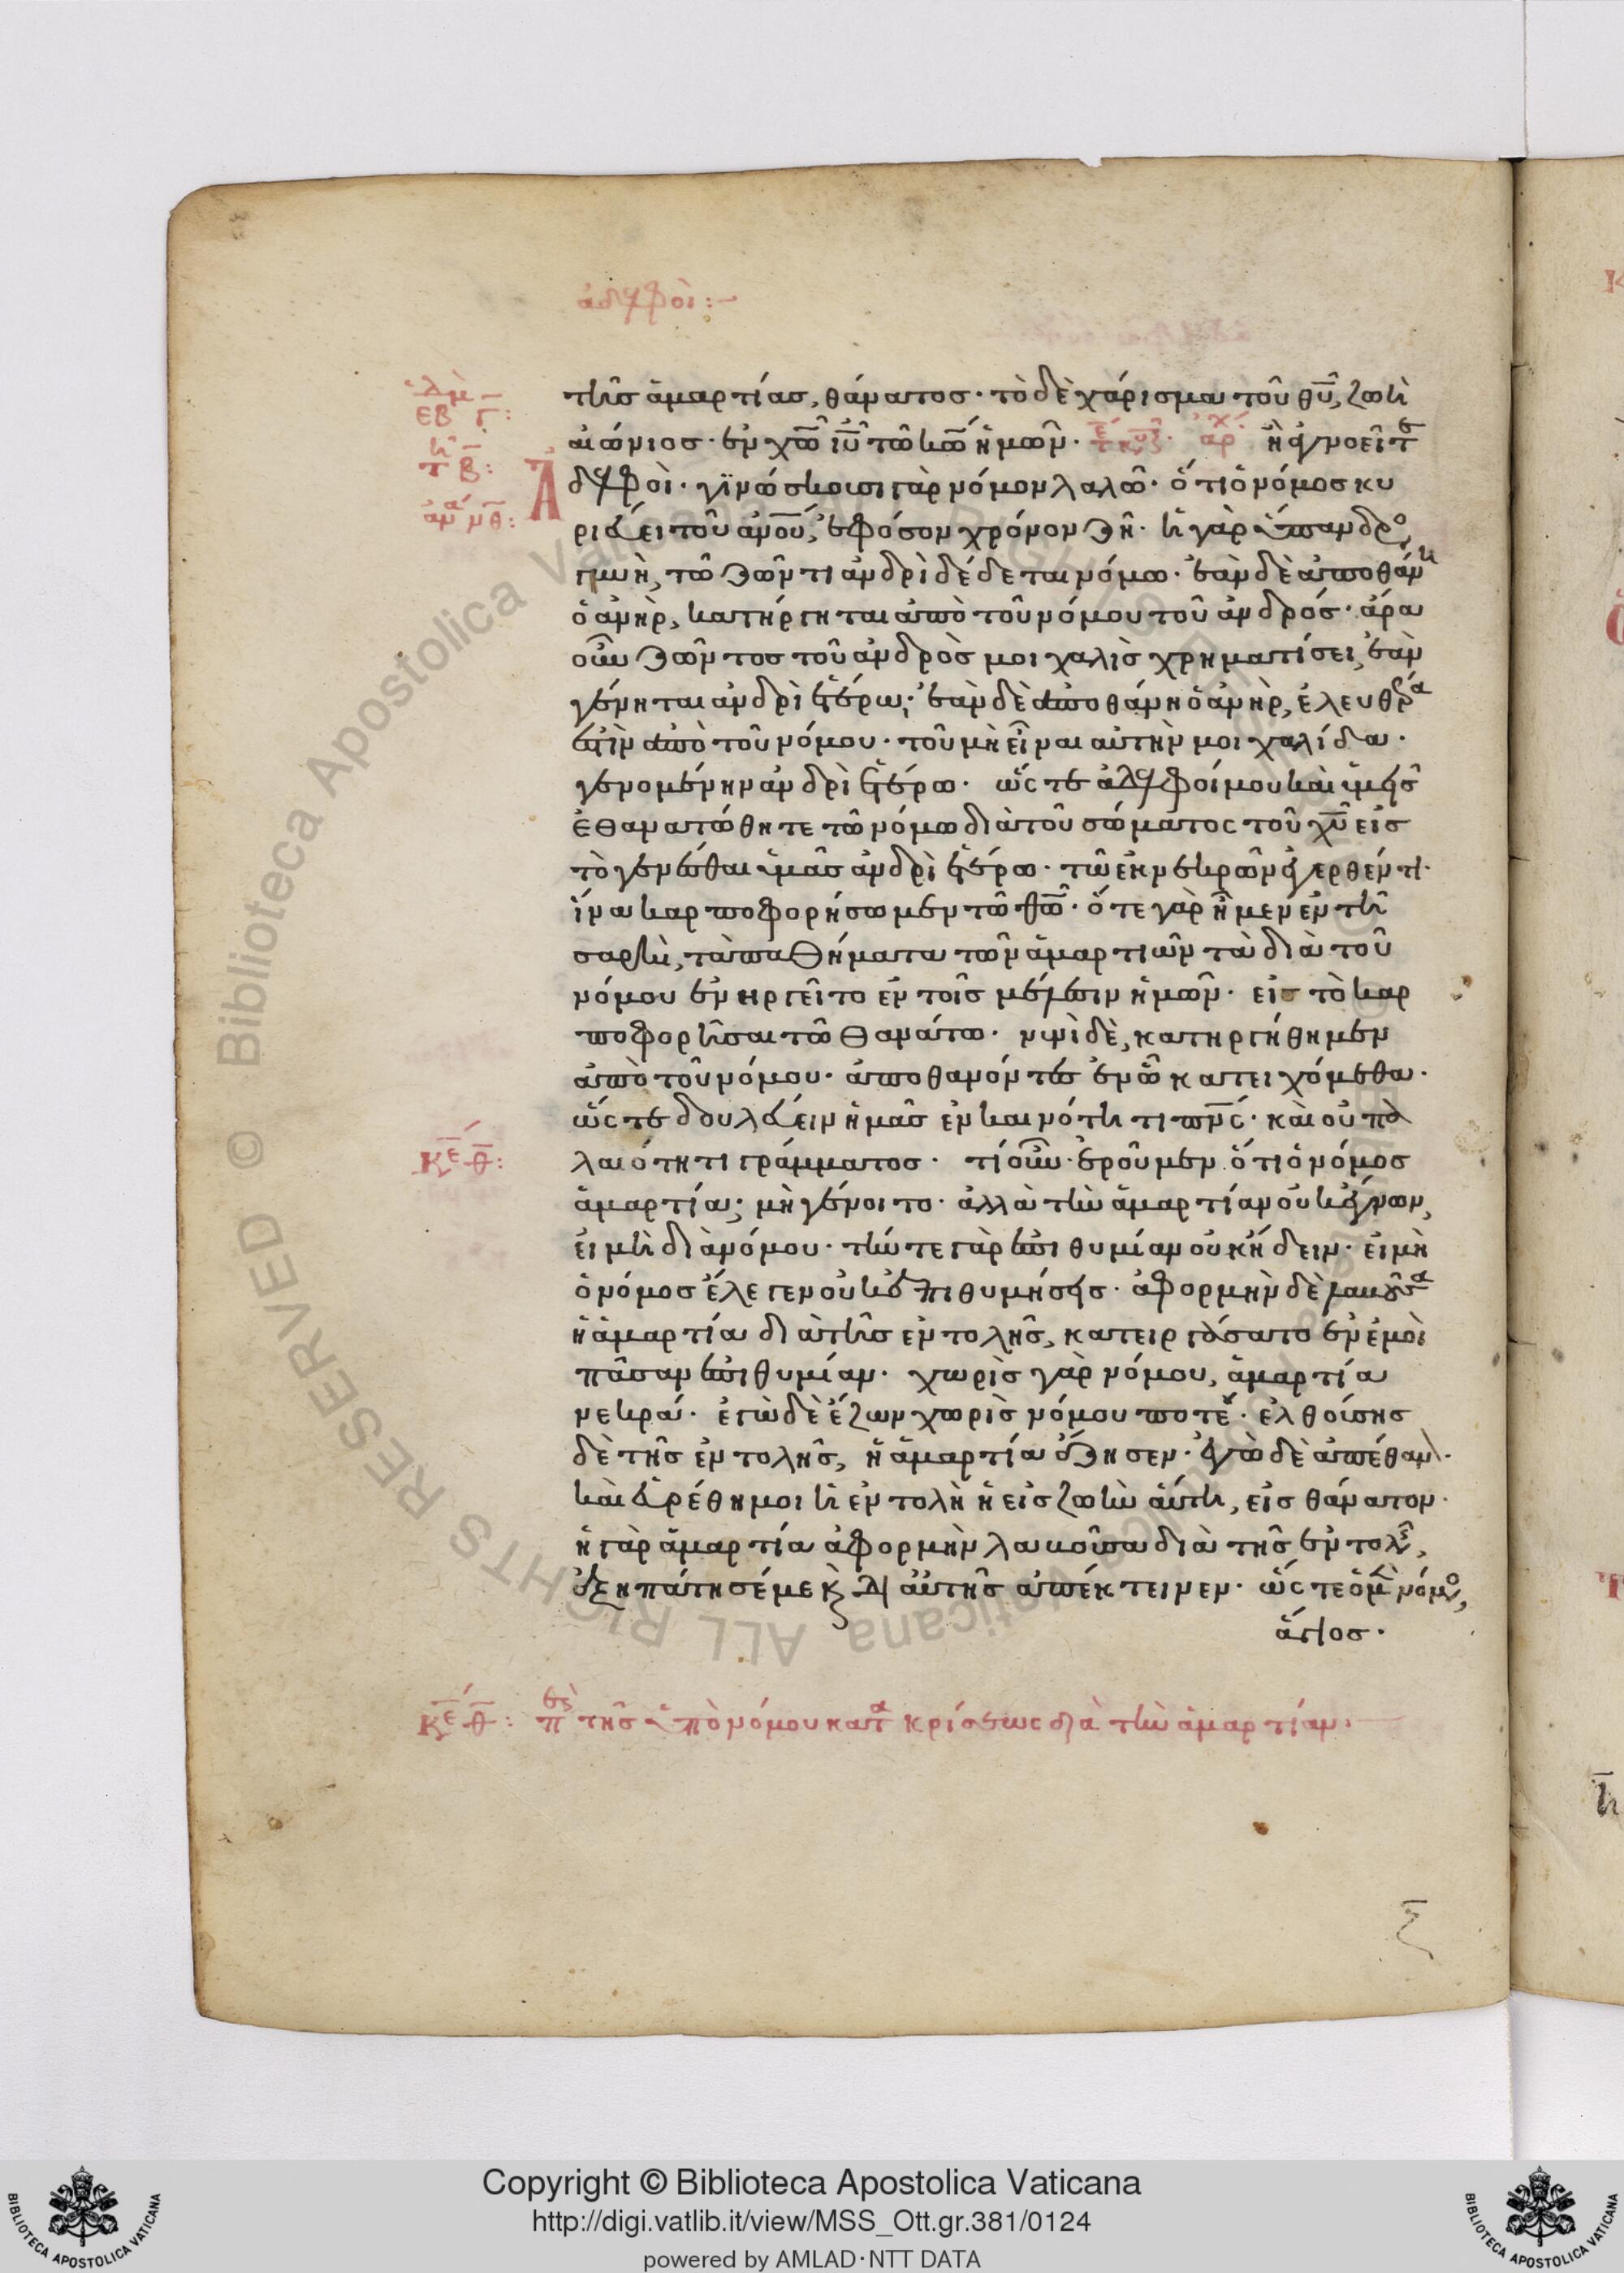 ἀδελφοὶ:
τῆς ἁμαρτίας, θάνατος· τὸ δὲ χάρισμα τοῦ θῦ, ζωὴ
αἰώνιος· ἐν χω ιυ τῶ κω ἡμῶν· ἢ ἀγνοεῖτε
ἀδελφοὶ· γϊνώσκουσι γὰρ νόμον λαλῶ· ὅτι ὁ νόμος κυ
ριεύει τοῦ ανου, ἐφόσον χρόνον ζῆ· ἡ γὰρ ὕπανδρος
γυνὴ, τῶ ζῶντι ἀνδρὶ δέδεται νόμω· ἐὰν δὲ ἀποθάνη
ὁ ἀνὴρ, κατήργηται ἀπὸ τοῦ νόμου τοῦ ἀνδρός· ἄρα
οὖν ζῶντος τοῦ ἀνδρὸς μοιχαλὶς χρηματίσει, ἐὰν
γένηται ἀνδρὶ ἑτέρω· ἐὰν δὲ ἀποθάνη ὁ ἀνὴρ, ἐλευθέρα
ἐστὶν ἀπὸ τοῦ νόμου· τοῦ μὴ εἶναι αὐτὴν μοιχαλίδα·
γενομένην ἀνδρὶ ἑτέρω· ὥστε ἀδελφοί μου καὶ ὑμεῖς
ἐθανατώθητε τῶ νόμω διὰ τοῦ σώματος τοῦ χυ εἰς
τὸ γενέσθαι ὑμᾶς ἀνδρὶ ἑτέρω· τῶ ἐκ νεκρῶν ἐγερθέντι·
ἵνα καρποφορήσωμεν τῶ θω· ὅτε γὰρ ἦμεν ἐν τῆ
σαρκὶ, τὰ παθήματα τῶν ἁμαρτιῶν τὰ διὰ τοῦ
νόμου ἐνηργεῖτο ἐν τοῖς μέλεσιν ἡμῶν· εἰς τὸ καρ
ποφορῆσαι τῶ θανάτω· νυνὶ δὲ, κατηργήθημεν
ἀπὸ τοῦ νόμου· ἀποθανόντες ἐν ὧ κατειχόμεθα·
ὥστε δουλεύειν ἡμᾶς ἐν καινότητι πνς· καὶ οὐ πα
κε θ: λαιότητι γράμματος· τί οὖν ἐροῦμεν ὅτι ὁ νόμος
ἁμαρτία; μὴ γένοιτο· ἀλλὰ τὴν ἁμαρτίαν οὐκ ἔγνων,
εἰ μὴ διὰ νόμου· τήν τε γὰρ ἐπιθυμίαν οὐκ ἤδειν· εἰ μὴ
ὁ νόμος ἔλεγεν οὐκ ἐπιθυμήσεις· ἀφορμὴν δὲ λαβοῦσα
ἡ ἁμαρτία διὰ τῆς ἐντολῆς, κατειργάσατο ἐν ἐμοὶ
πᾶσαν ἐπιθυμίαν· χωρὶς γὰρ νόμου, ἁμαρτία
νεκρά· ἐγὼ δὲ ἔζων χωρὶς νόμου ποτέ· ἐλθούσης
δὲ τῆς ἐντολῆς, ἡ ἁμαρτία ἀνέζησεν· ἐγὼ δὲ ἀπέθανον·
καὶ εὑρέθη μοι ἡ ἐντολὴ ἡ εἰς ζωὴν αὕτη, εἰς θάνατον·
ἡ γὰρ ἁμαρτία ἀφορμὴν λαβοῦσα διὰ τῆς ἐντολῆς,
ἐξηπάτησέ με κ δι αὐτῆς ἀπέκτεινεν· ὥστε ὁ μὲν νόμος,
ἅγιος·
κε θ: περὶ τῆς ὑπὸ νόμου κατακρίσεως διὰ τὴν ἁμαρτίαν·
Copyright © Biblioteca Apostolica Vaticana
http://digi.vatlib.it/view/MSS_Ott.gr.381/0124
powered by AMLAD·NTT DATA